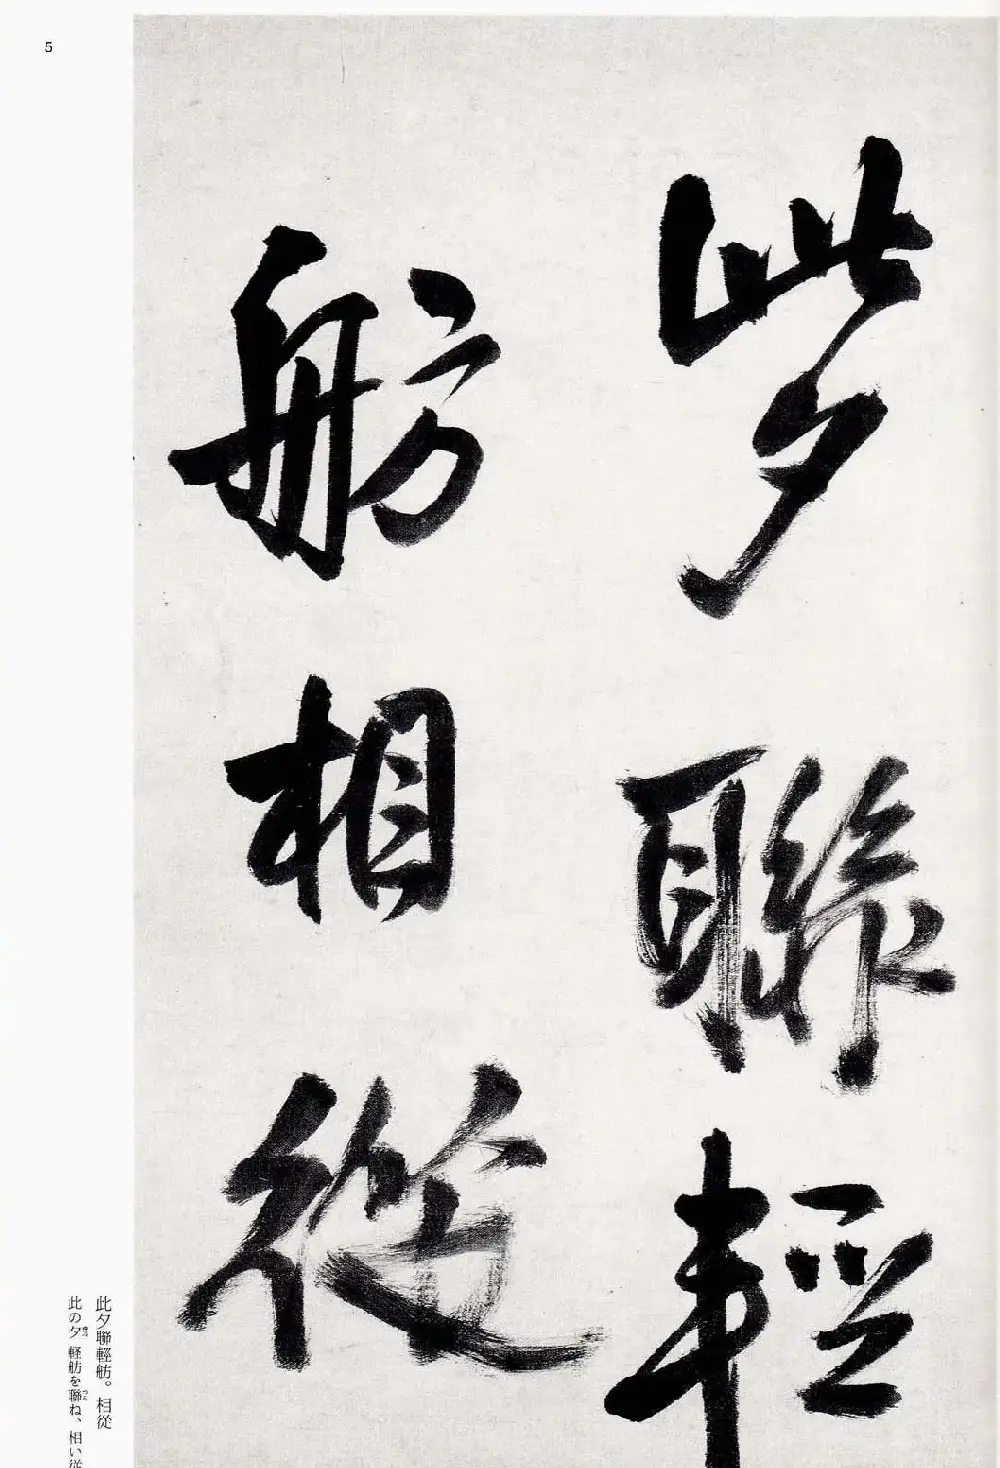 5
此夕聯輕
舫相從
此夕聯輕舫。相従
此の夕軽舫を聯ね、相い従